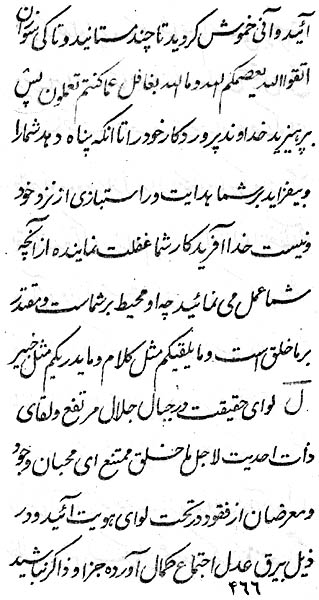 آئید و آنی خموش کردید تا چند مستانید و تا کی سکران
اتقوا الله یعصمکم الله و ما الله بغافل عما کنتم تعلمون پس
بپرهیزید خداوند پروردکار خود را تا انکه پناه دهد شما را
و بیفزاید بر شما هدایت و راستبازی از نزد خود
و نیست خدا آفریدکار شما غفلت نماینده از آنچه
شما عمل می نمائید چه او محیط بر شماست و مقتدر
بر ما خلق است و ما یلقیکم مثل کلام و ما یدریکم مثل خبیر
ل لوای حقیقت در جبال جلال مرتفع و لقای
ذات احدیت لاجل ملء خلق ممتنع ای محبان وجود
و معرضان از فقود در تحت لوای هویت آئید و در
ذیل بیرق عدل اجتماع کمال آورده جز او ذاکر نباشید
۴۶۶